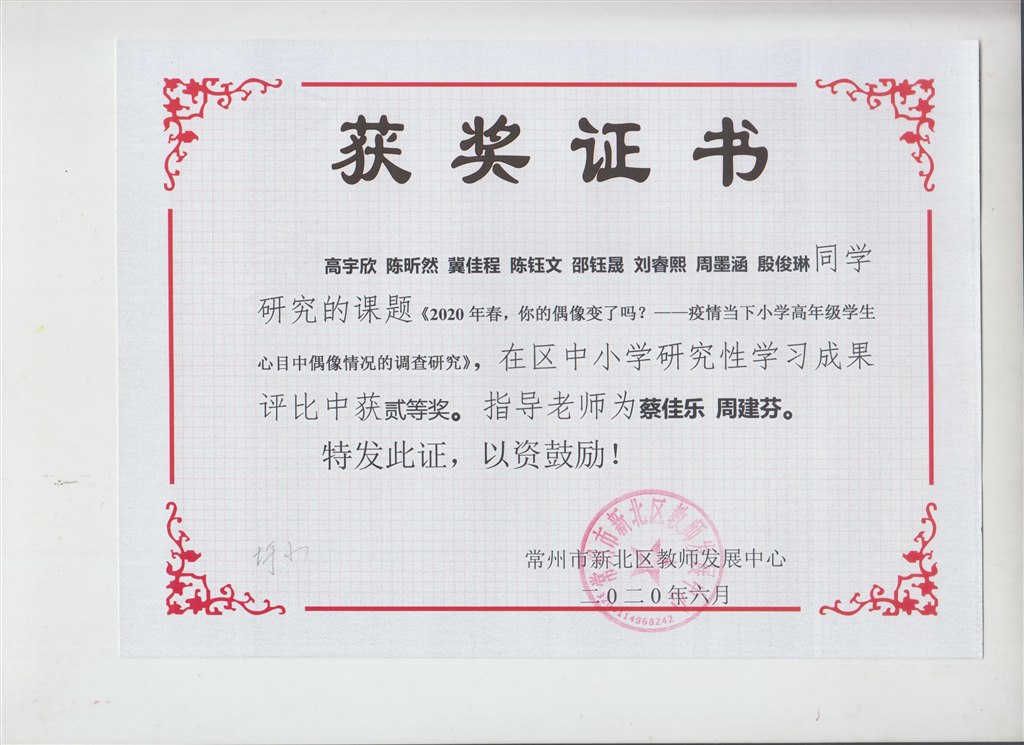 获奖证书
高宇欣 陈昕然 冀佳程 陈钰文 邵钰晟 刘睿熙 周墨涵 殷俊琳同学
研究的课题《2020 年春，你的偶像变了吗？——疫情当下小学高年级学生
心目中偶像情况的调查研究》，在区中小学研究性学习成果
评比中获贰等奖。指导老师为蔡佳乐 周建芬。
特发此证，以资鼓励！
常州市新北区教师发展中心
二0二0年六月
常州市新北区教师发展中心